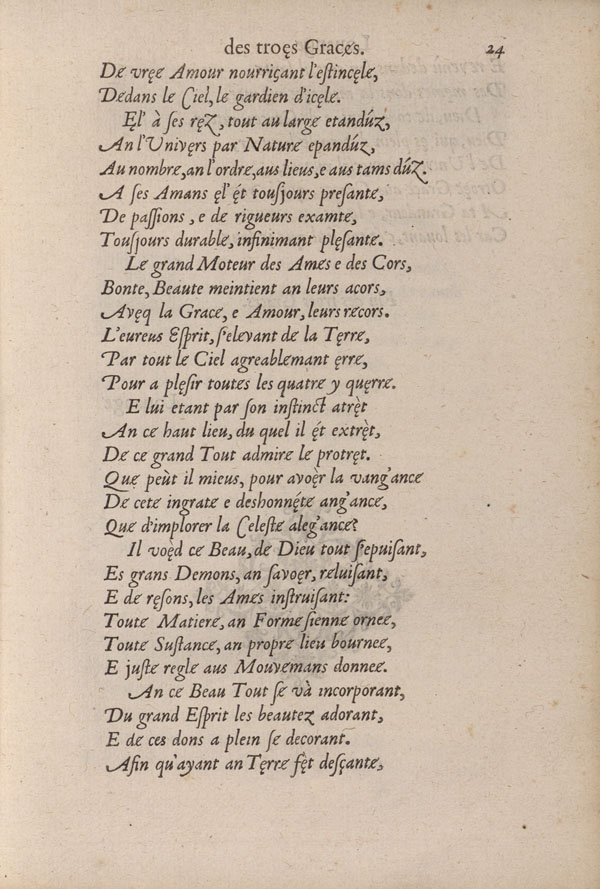 des troęs Graces. 24
De vręe Amour nourriçant l'estincęle,
Dedans le Ciel, le gardien d'icęle.
Ęl' à ses ręz, tout au large etandúz,
An l'Univęrs par Nature epandúz,
Au nombre, an l'ordre, aus lieus, e aus tams dúz.
A ses Amans ęl' ét tousjours presante,
De passions, e de rigueurs examte,
Tousjours durable, infinimant plęsante.
Le grand Moteur des Ames e des Cors,
Bonte, Beaute meintient an leurs acors,
Avęq la Grace, e Amour, leurs recors.
L'eureus Esprit, s'elevant de la Tęrre,
Par tout le Ciel agreablemant ęrre,
Pour a plęsir toutes les quatre y quęrre.
E lui etant par son instinct atręt
An ce haut lieu, du quel il ét extręt,
De ce grand Tout admire le protręt.
Que peùt il mieus, pour avoęr la vang'ance
De cete ingrate e deshonnéte ang'ance,
Que d'implorer la Celeste aleg'ance?
Il voęd ce Beau, de Dieu tout s'epuisant,
Es grans Demons, an savoęr, reluisant,
E de ręsons, les Ames instruisant:
Toute Matiere, an Forme sienne ornee,
Toute Sustance, an propre lieu bournee,
E juste regle aus Mouvemans donnee.
An ce Beau Tout se và incorporant,
Du grand Esprit les beautez adorant,
E de ces dons a plein se decorant.
Afin qu'ayant an Tęrre fęt desçante,